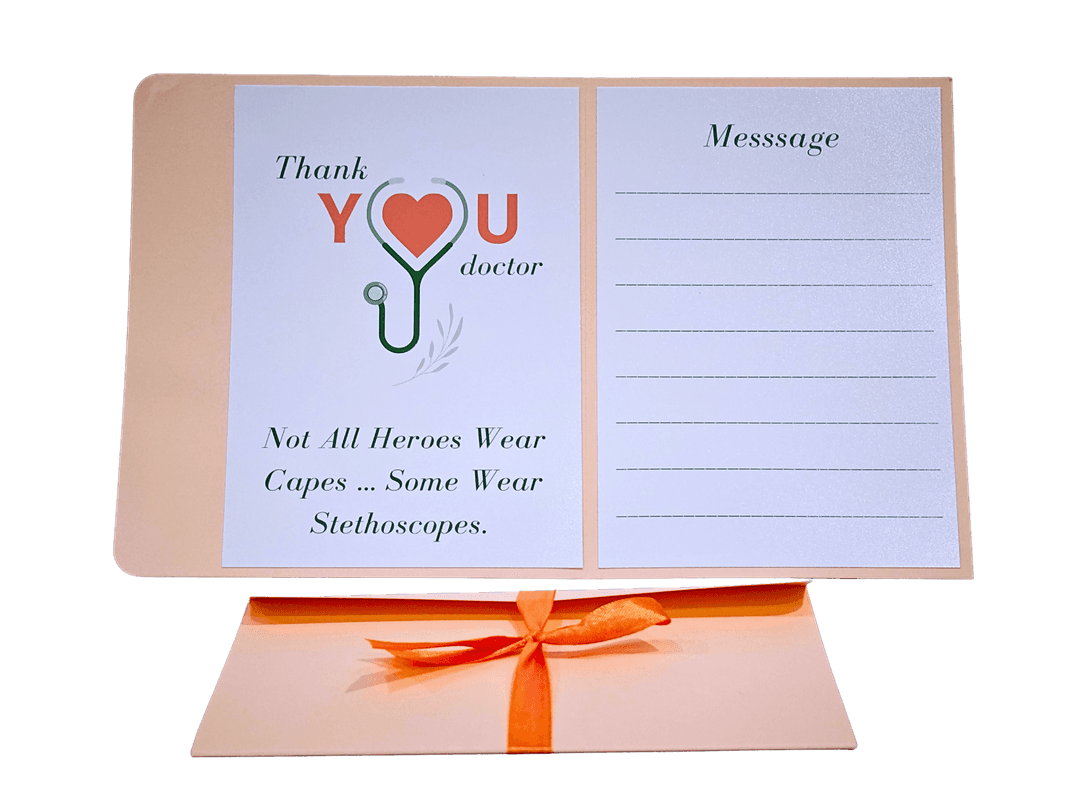 Thank
YOU
doctor
Not All Heroes Wear
Capes ... Some Wear
Stethoscopes.
Messsage